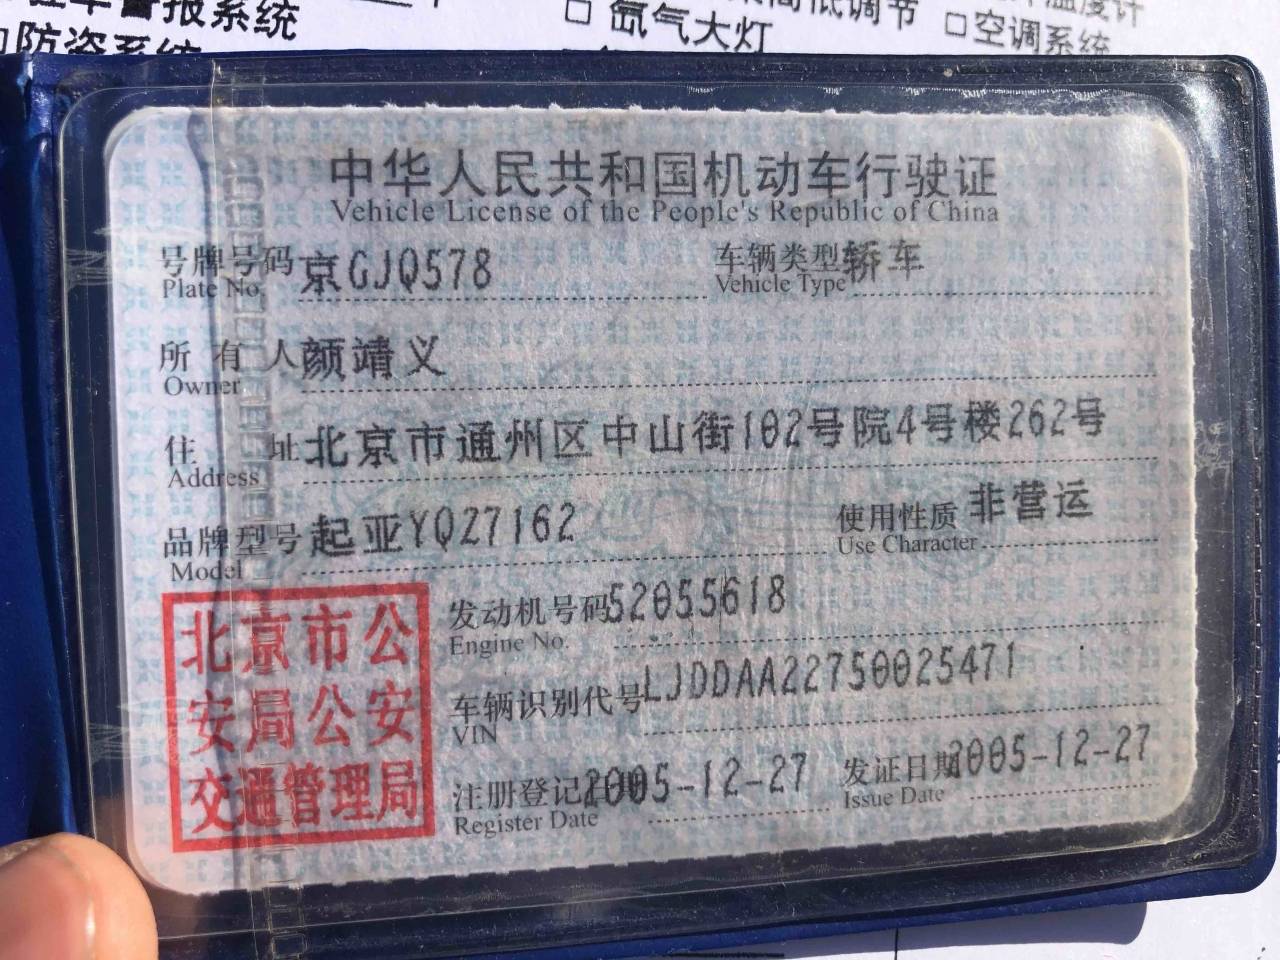 报系统
□ 氙气大灯
低调节
温度计
□ 空调系统
□防盗系统
中华人民共和国机动车行驶证
Vehicle License of the People's Republic of China
号牌号码 京GJQ578 车辆类型 轿车
Plate No. Vehicle Type
所有人 颜靖义
Owner
住址 北京市通州区中山街102号院4号楼262号
Address
品牌型号 起亚YQZ7162 使用性质 非营运
Model Use Character
发动机号码 52055618
Engine No.
车辆识别代号 LJDDAA22750025471
VIN
注册登记日期 2005-12-27 发证日期 2005-12-27
Register Date Issue Date
北京市公
安局公安
交通管理局